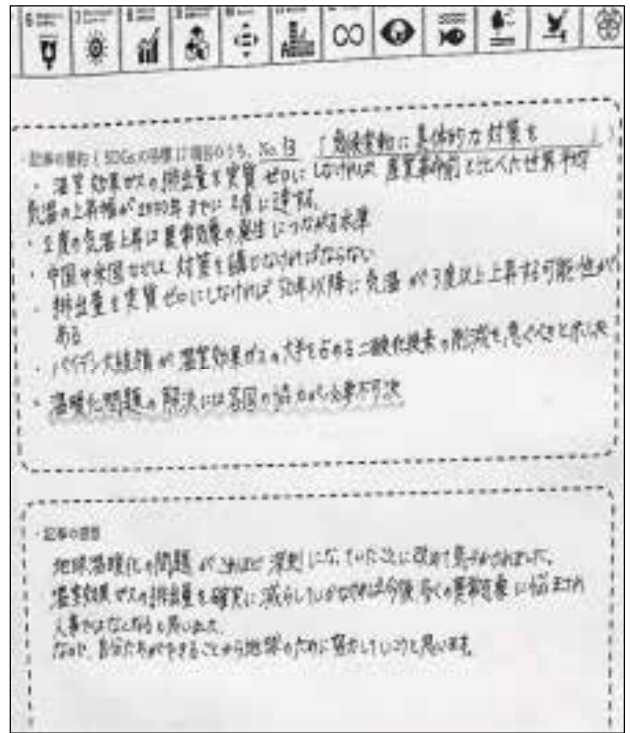 6
7
8
記事の要約（SDGsの目標17項目のうち、No.13「気候変動に具体的な対策を」）
・温室効果ガスの排出量を実質ゼロにしなければ産業革命前と比べた世界平均
気温の上昇幅が2050年までに2度に達する。
・2度の気温上昇は異常気象の発生につながる水準
・中国や米国などは対策を講じなければならない
・排出量を実質ゼロにしなければ50年以降に気温が3度以上上昇する可能性が
ある
・バイデン大統領が温室効果ガスの大半を占める二酸化炭素の削減を急ぐべきと示した
・温暖化問題の解決には各国の協力が必要不可欠
・記事の感想
地球温暖化の問題がこれほど深刻になっていたことに改めて気づかされました。
温室効果ガスの排出量を確実に減らしていかなければ今後多くの異常気象に悩まされ
人事ではなくなると思いました。
なので、自分たちができることから地球のために努力していこうと思います。